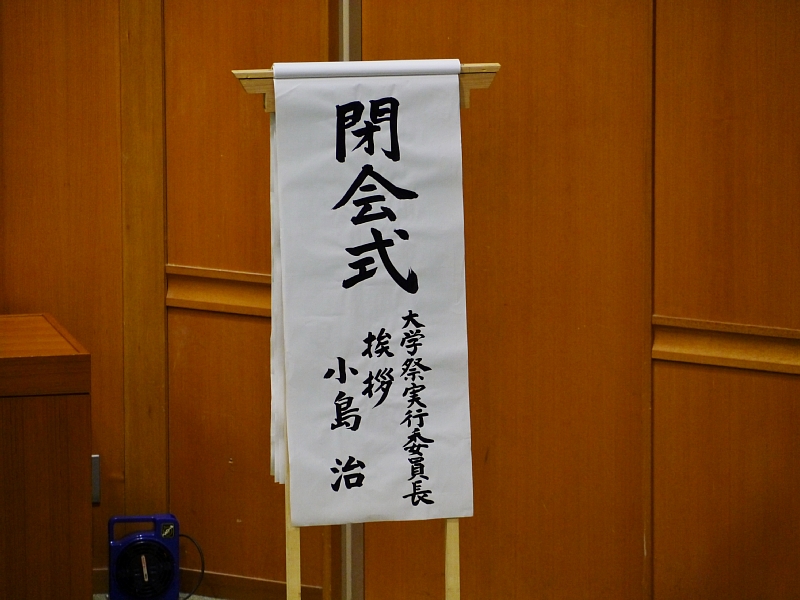 閉会式
大学祭実行委員長
挨拶
小島 治